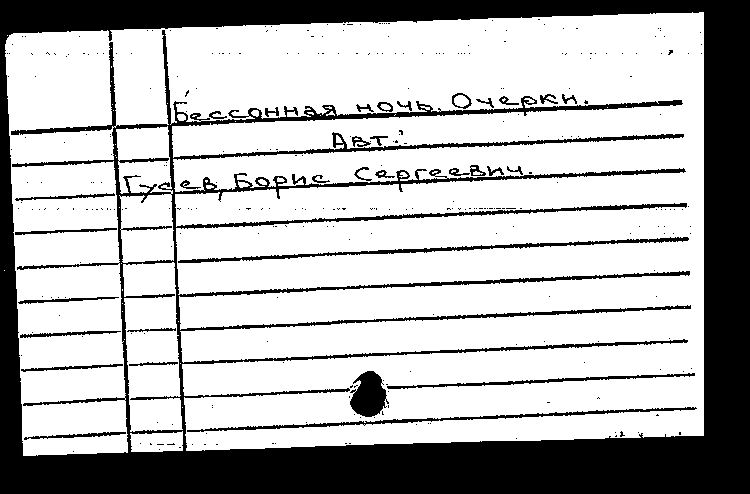 Бессонная ночь. Очерки.
Авт.:
Гусев, Борис Сергеевич.